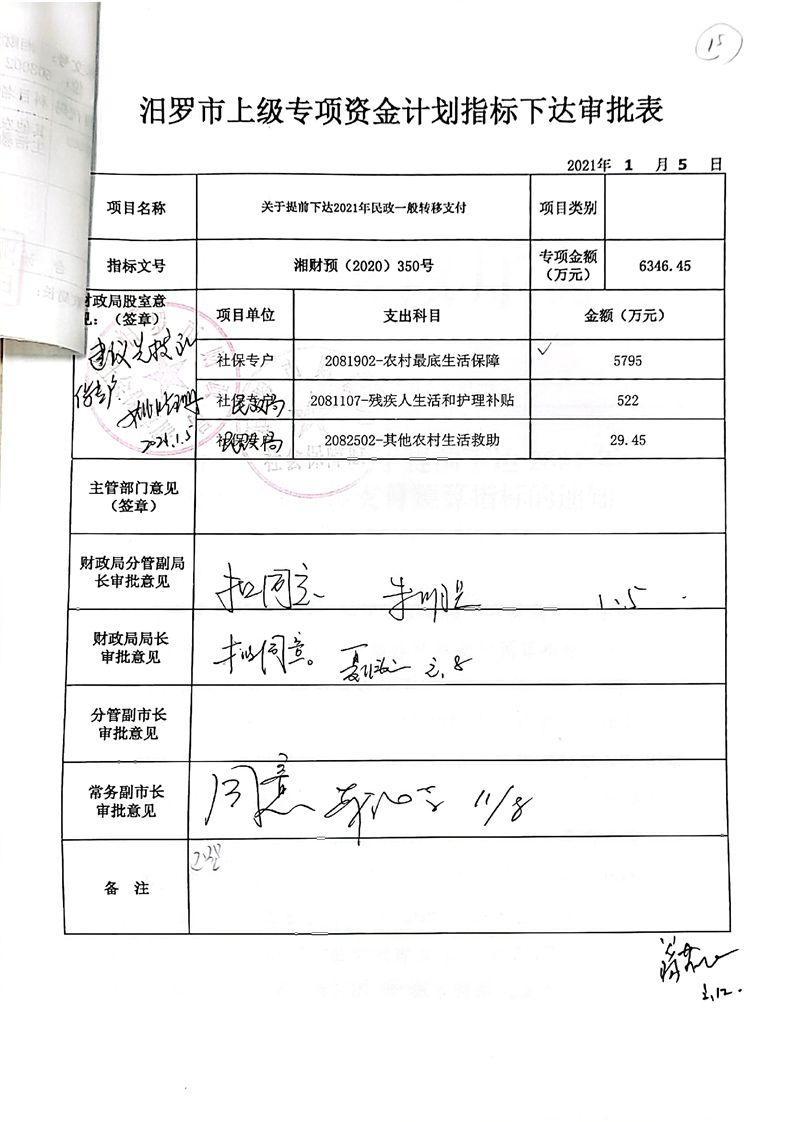 15
汨罗市上级专项资金计划指标下达审批表
2021年 1 月 5 日
项目名称 关于提前下达2021年民政一般转移支付 项目类别
指标文号 湘财预（2020）350号 专项金额（万元） 6346.45
财政局股室意见：（签章） 项目单位 支出科目 金额（万元）
建议
2021.1.5
社保专户 2081902-农村最底生活保障 ✓ 5795
社保 民政局 2081107-残疾人生活和护理补贴 522
民政局 2082502-其他农村生活救助 29.45
主管部门意见（签章）
财政局分管副局长审批意见 拟同意 1.5
财政局局长审批意见 拟同意。
分管副市长审批意见
常务副市长审批意见 同意 11/8
备 注